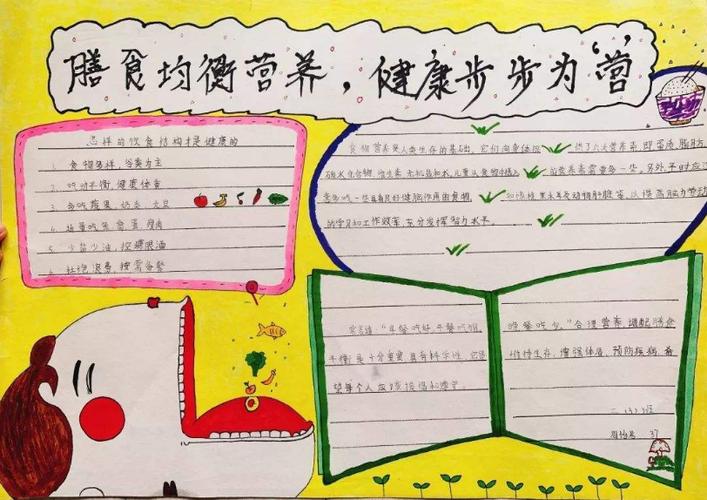 膳食均衡营养，健康步步为“营”
怎样的饮食结构才是健康的
1. 食物多样，谷类为主
2. 吃动平衡，健康体重
3. 多吃蔬果、奶类、大豆
4. 适量吃鱼、禽、蛋、瘦肉
5. 少盐少油，控糖限酒
6. 杜绝浪费，
食物营养是人类生存的基础，它们向身体提供了六大营养素，即蛋白质、脂肪、
碳水化合物、维生素、无机盐和水，儿童从食物中摄入的营养素需要多一些，另外，平时应
多吃一些具有良好健脑作用的食物，
的学习和工作效率，充分发挥智力水平。
常言道：“早餐吃好，午餐吃饱，
晚餐吃少。”合理营养，调配膳食
平衡是十分重要，具有科学性，它
望每个人应该
维持生存，增强体质，预防疾病，
班
37